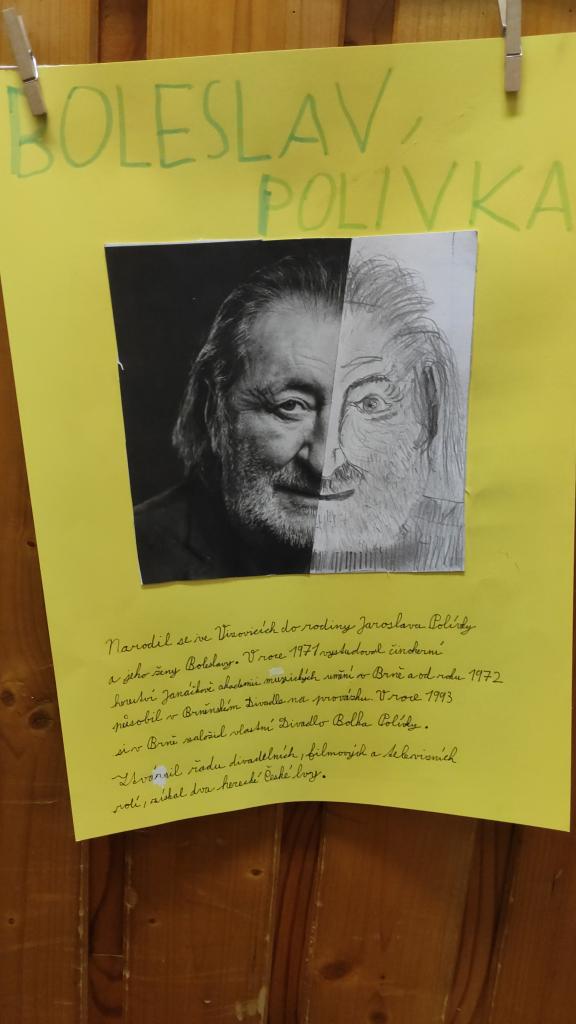 BOLESLAV
POLÍVKA
Narodil se ve Vizovicích do rodiny Jaroslava Polívky
a jeho ženy Boleslavy. V roce 1971 vystudoval činoherní
herectví Janáčkově akademii muzických umění v Brně a od roku 1972
působil v Brněnském Divadle na provázku. V roce 1993
si v Brně založil vlastní Divadlo Bolka Polívky.
Ztvárnil řadu divadelních, filmových a televizních
rolí, získal dva herecké České lvy.